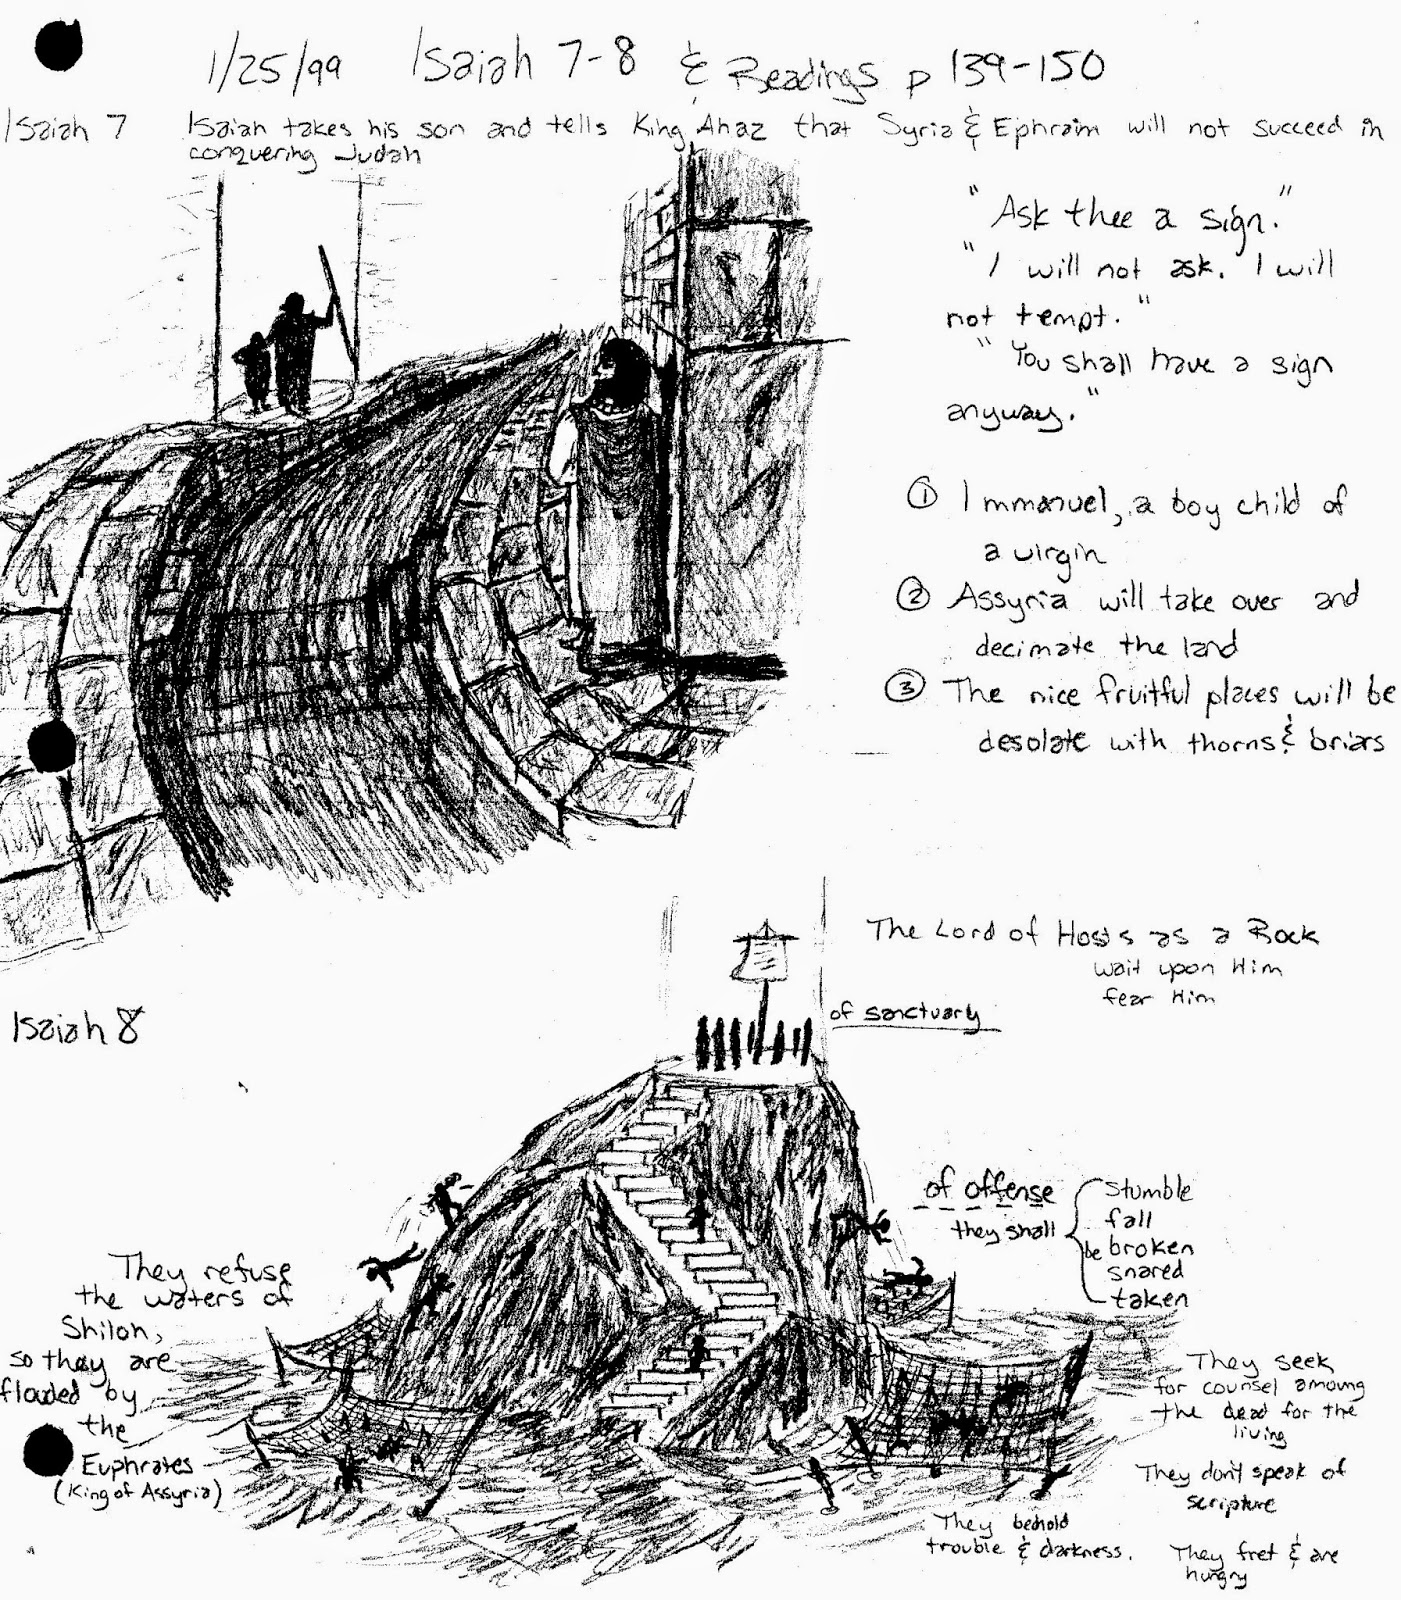 1/25/99 Isaiah 7-8 & Readings p 139-150
Isaiah 7 Isaiah takes his son and tells King Ahaz that Syria & Ephraim will not succeed in
conquering Judah
"Ask thee a sign."
"I will not ask. I will
not tempt."
"You shall have a sign
anyway."
① Immanuel, a boy child of
a virgin
② Assyria will take over and
decimate the land
③ The nice fruitful places will be
desolate with thorns & briars
The Lord of Hosts as a Rock
wait upon Him
fear Him
of sanctuary
Isaiah 8
of offense
they shall
stumble
fall
be broken
snared
taken
They refuse
the waters of
Shiloh,
so they are
flooded by
the
Euphrates
(King of Assyria)
They seek
for counsel among
the dead for the
living
They don't speak of
scripture
They behold
trouble & darkness.
They fret & are
hungry